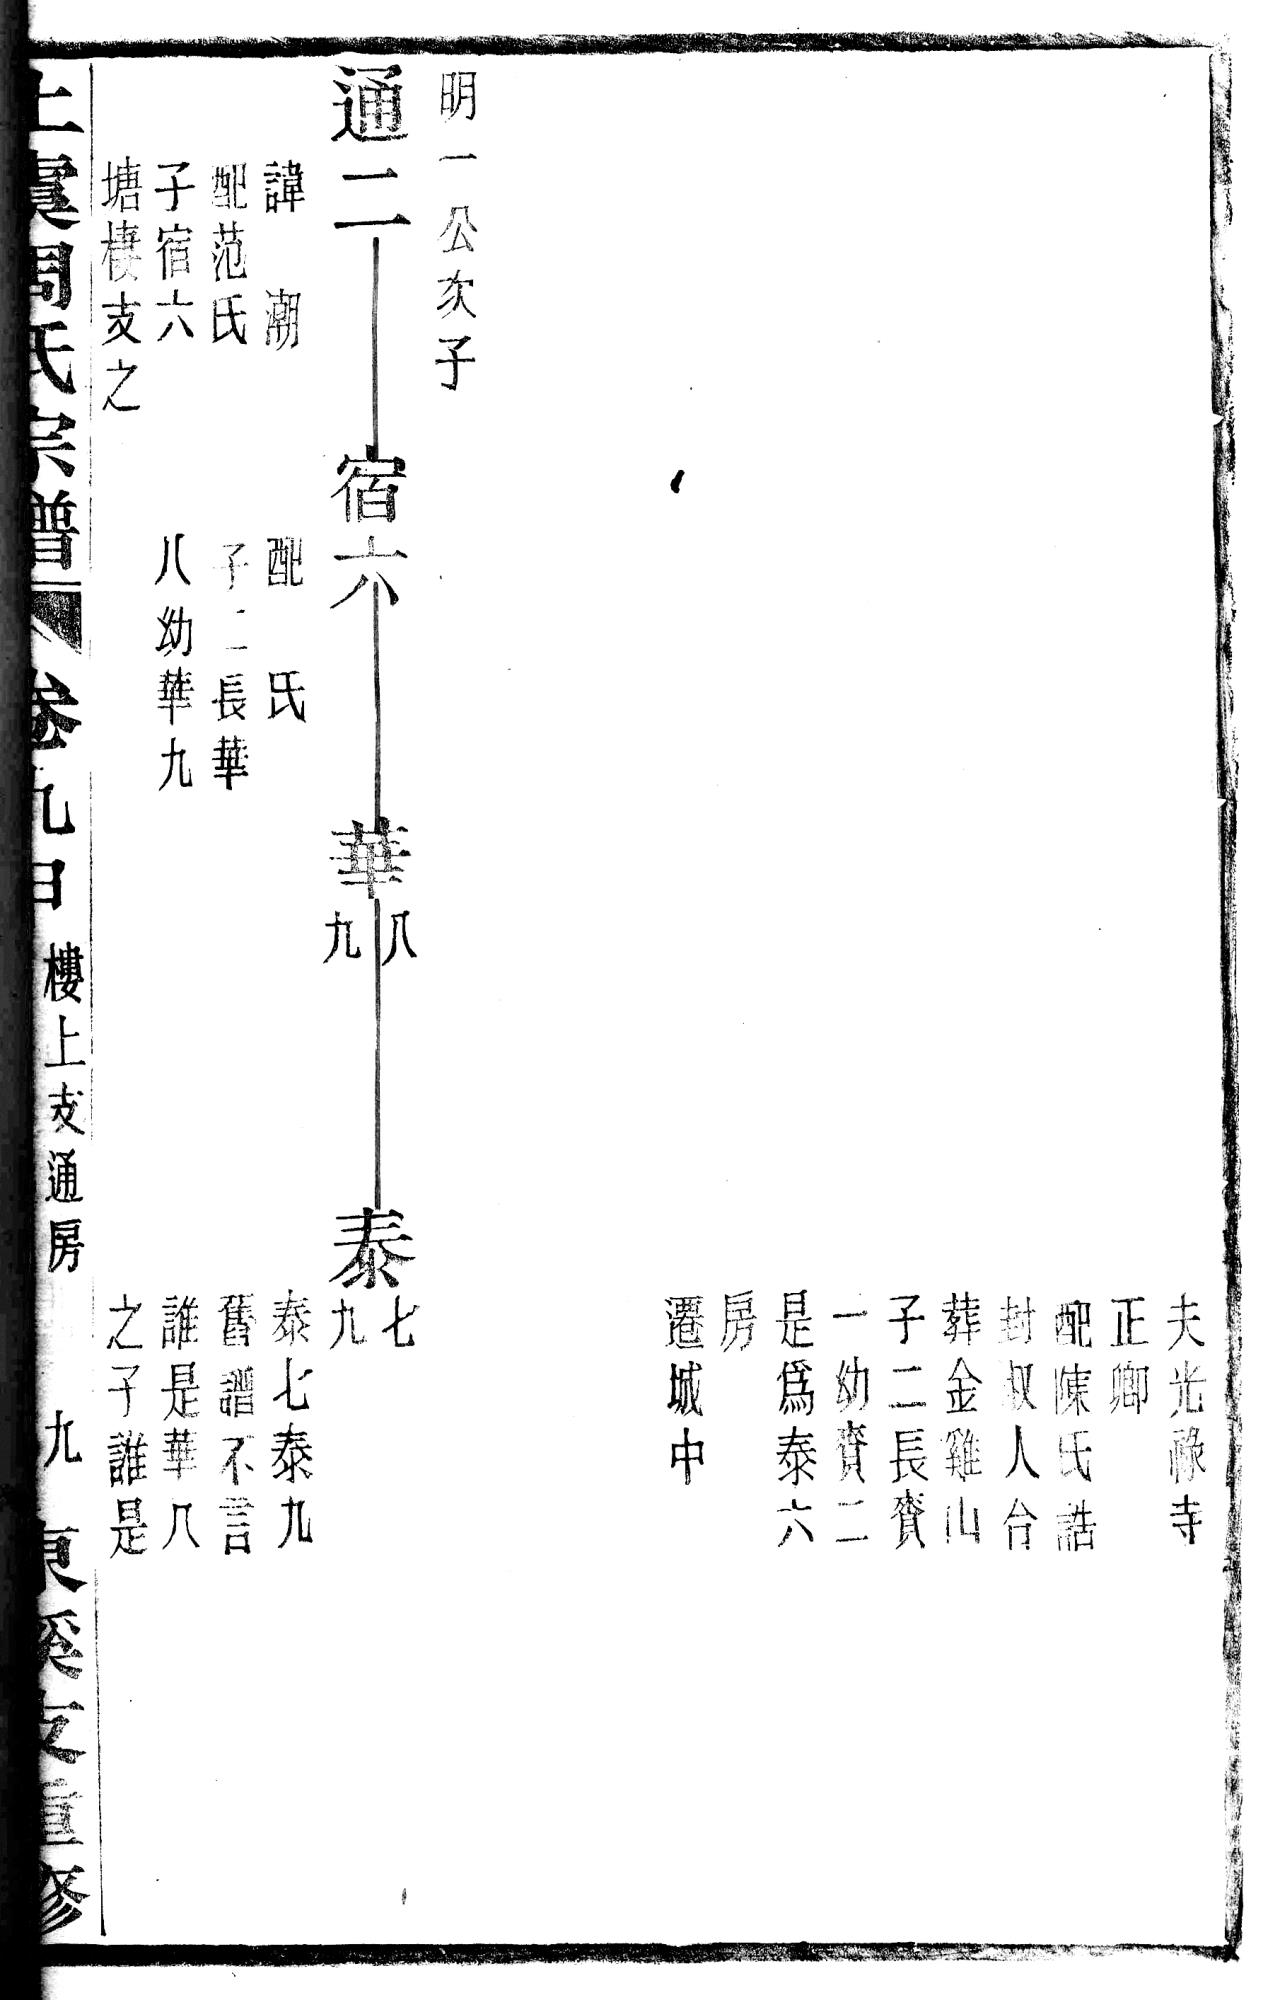 夫光祿寺
正卿
配陳氏誥
封淑人合
葬金雞山
子二長賓
一幼賓二
是爲泰六
房
遷城中
明一公次子
通二
宿六
華
八
九
泰
七
九
諱 潮
配范氏
子宿六
塘棲支之
配 氏
子二長華
八幼華九
泰七泰九
舊譜不言
誰是華八
之子誰是
上虞周氏宗譜
卷九
樓上支通房
九
東溪支重修